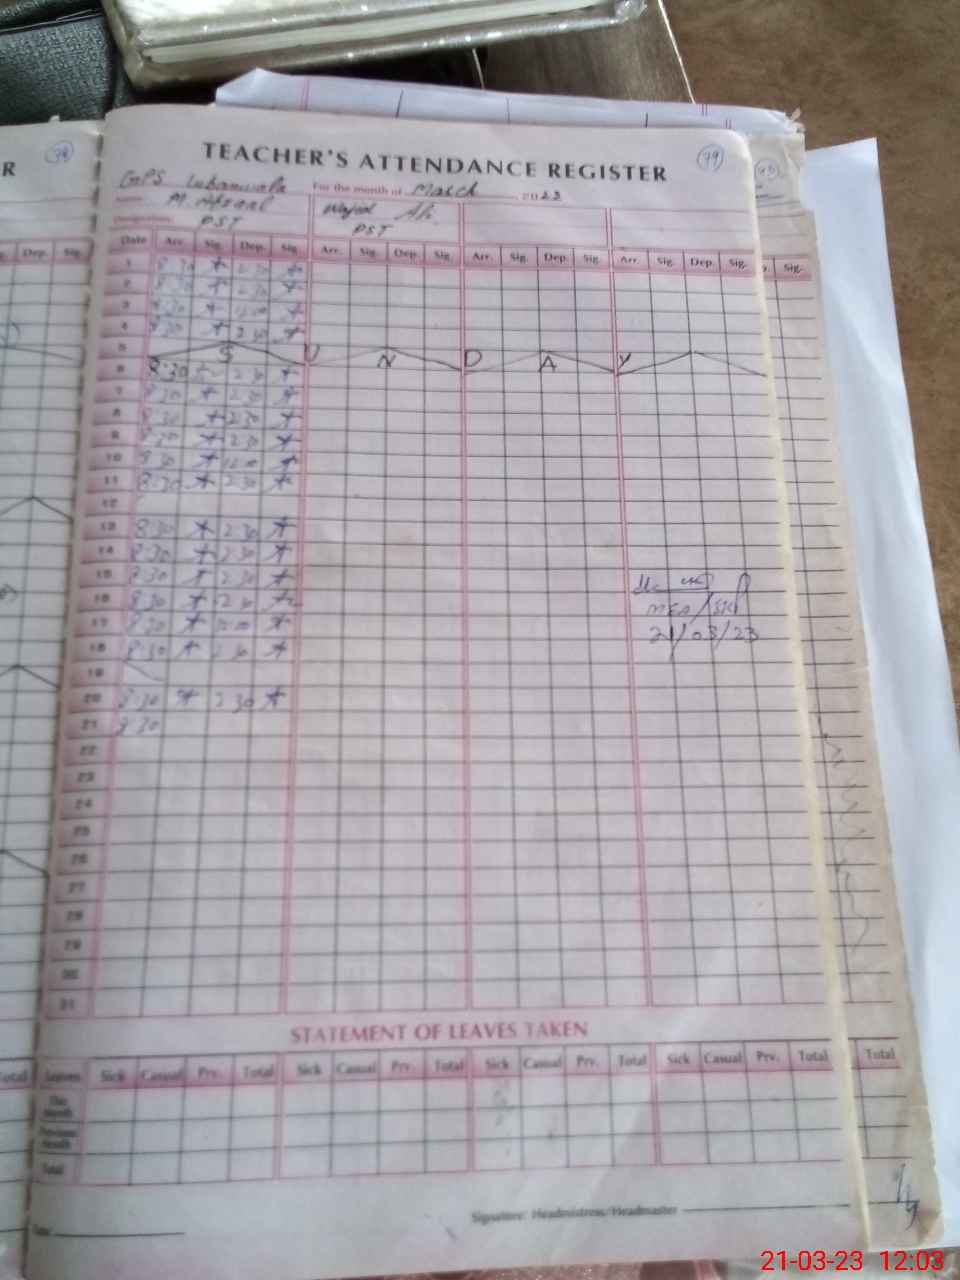 R
79
TEACHER'S ATTENDANCE REGISTER
79
GPS
For the month of March 2023
Name M. Afzaal Wajid Ali
Designation PST PST
Dep. Sig.
Date Arr. Sig. Dep. Sig. Arr. Sig. Dep. Sig. Arr. Sig. Dep. Sig. Arr. Sig. Dep. Sig. Sig.
1 8:30 2:30
2 8:30 2:30
3 8:30 12:00
4 8:30 2:30
5 S U N D A Y
6 8:30 2:30
7 8:30 2:30
8 8:30 2:30
9 8:30 2:30
10 8:30 12:00
11 8:30 2:30
12
13 8:30 2:30
14 8:30 2:30
15 8:30 2:30
16 8:30 2:30
17 8:30 12:00
18 8:30 2:30
19
20 8:30 2:30
21 8:30
MEA/SKP
21/03/23
22
23
24
25
26
27
28
29
30
31
STATEMENT OF LEAVES TAKEN
Total Leaves Sick Casual Prv. Total Sick Casual Prv. Total Sick Casual Prv. Total Sick Casual Prv. Total Total
This Month
Previous Month
Total
Signature: Headmistress/Headmaster
Date
21-03-23 12:03